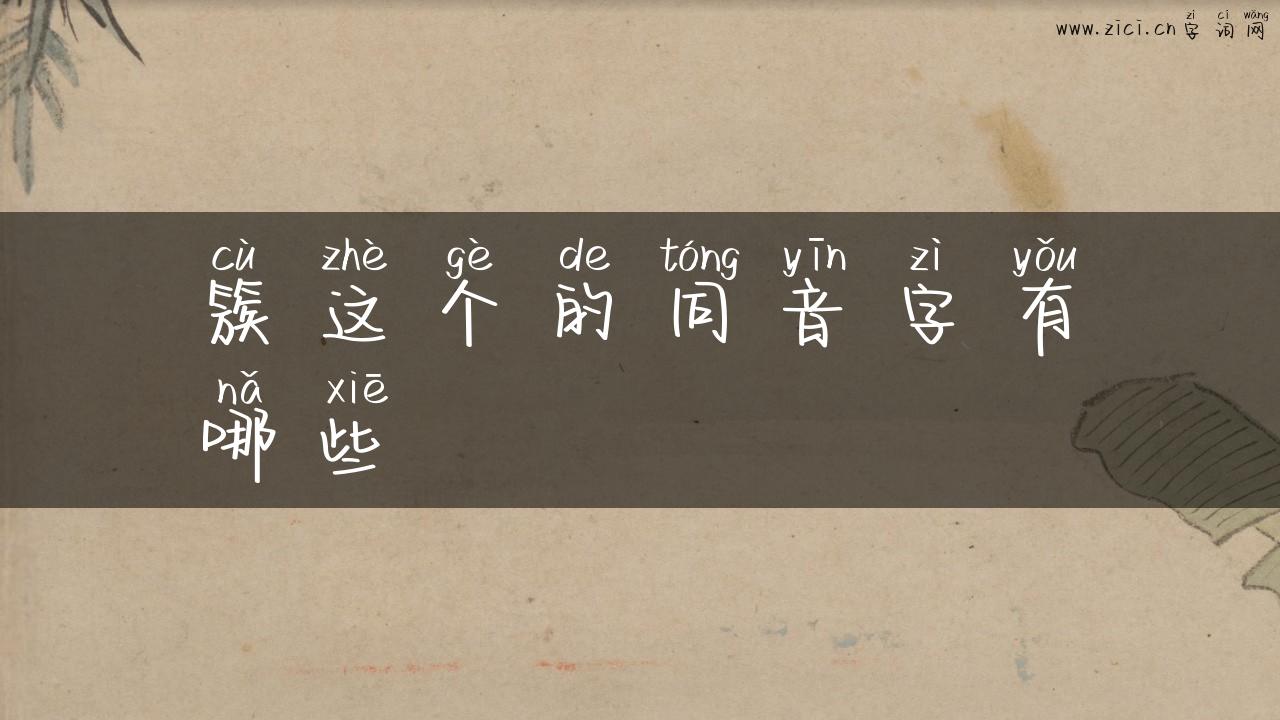 www.zici.cn zì cí wǎng 字词网
cù zhè gè de tóng yīn zì yǒu
簇这个的同音字有
nǎ xiē
哪些